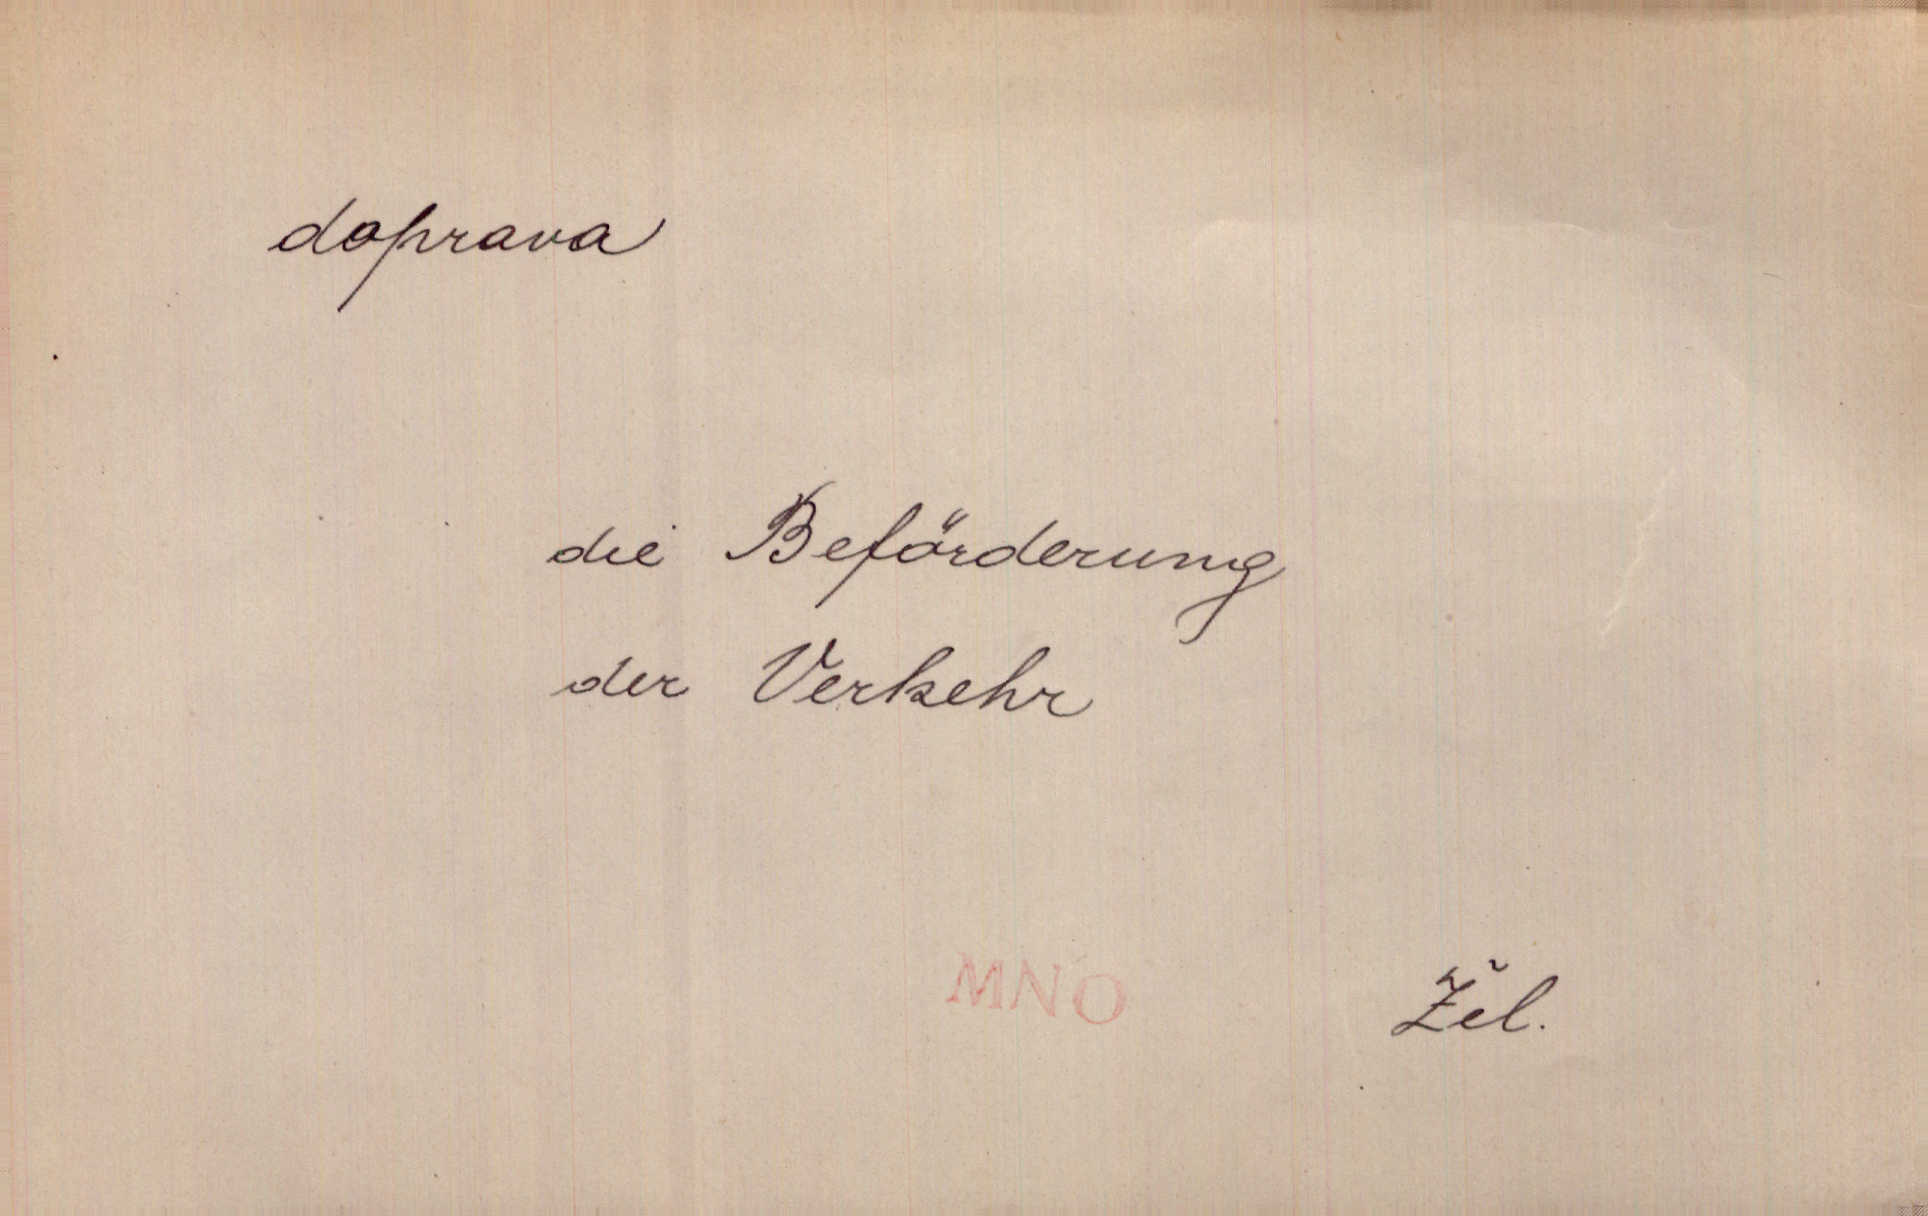 doprava
die Beförderung
der Verkehr
MNO
Žel.